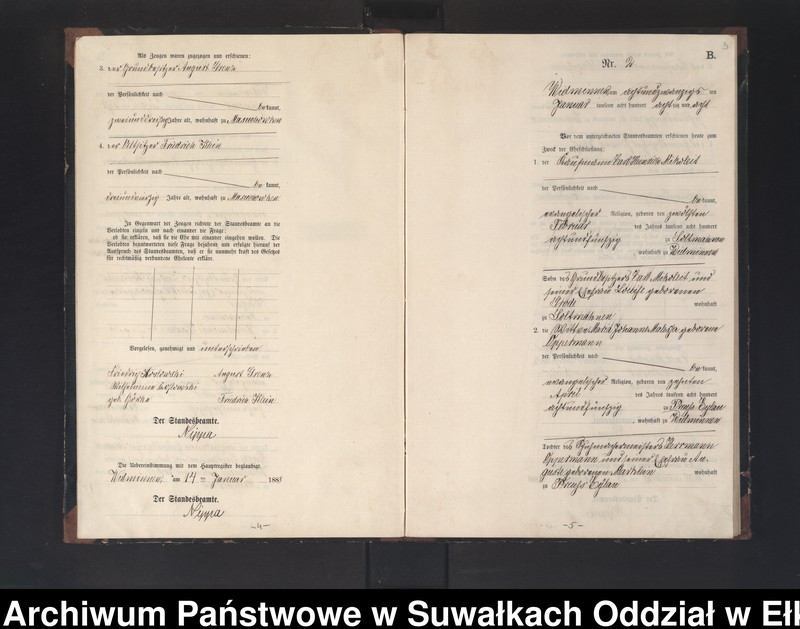 Als Zeugen waren zugezogen und erschienen:
3. der Grundbesitzer August
der Persönlichkeit nach
be kannt,
zweiunddreißig Jahre alt, wohnhaft zu
4. der Altsitzer Friedrich Klein
der Persönlichkeit nach
be kannt,
Jahre alt, wohnhaft zu
In Gegenwart der Zeugen richtete der Standesbeamte an die
Verlobten einzeln und nach einander die Frage:
ob sie erklären, daß sie die Ehe mit einander eingehen wollen. Die
Verlobten beantworteten diese Frage bejahend und erfolgte hierauf der
Ausspruch des Standesbeamten, daß er sie nunmehr kraft des Gesetzes
für rechtmäßig verbundene Eheleute erkläre.
Vorgelesen, genehmigt und unterschrieben
Friedrich Koslowski August
Wilhelmine Koslowski
geb. Friedrich Klein
Der Standesbeamte.
Nippa
Die Uebereinstimmung mit dem Hauptregister beglaubigt.
Widminnen, am 14 ten Januar 1888
Der Standesbeamte.
Nippa
-4-
B.
Nr. 2
Widminnen am achtundzwanzigsten
Januar tausend acht hundert achtzig und acht
Vor dem unterzeichneten Standesbeamten erschienen heute zum
Zweck der Eheschließung:
1. der Kaufmann Carl Heinrich
der Persönlichkeit nach
be kannt,
evangelischer Religion, geboren den zwölften
Februar des Jahres tausend acht hundert
achtundfünfzig zu Soltmahnen
, wohnhaft zu Widminnen
Sohn des Grundbesitzers Carl und
seiner Ehefrau Louise geborenen
wohnhaft
zu Soltmahnen
2. die Wittwe Marie Johanne geborene
Oppermann
der Persönlichkeit nach
be kannt,
evangelischer Religion, geboren den zehnten
April des Jahres tausend acht hundert
achtundfünfzig zu Preuß. Eylau
, wohnhaft zu Widminnen
Tochter des Schuhmachermeisters Herrmann
Oppermann und seiner Ehefrau Au-
guste geborenen wohnhaft
zu Preuß. Eylau
-5-
Archiwum Państwowe w Suwałkach Oddział w Ełk